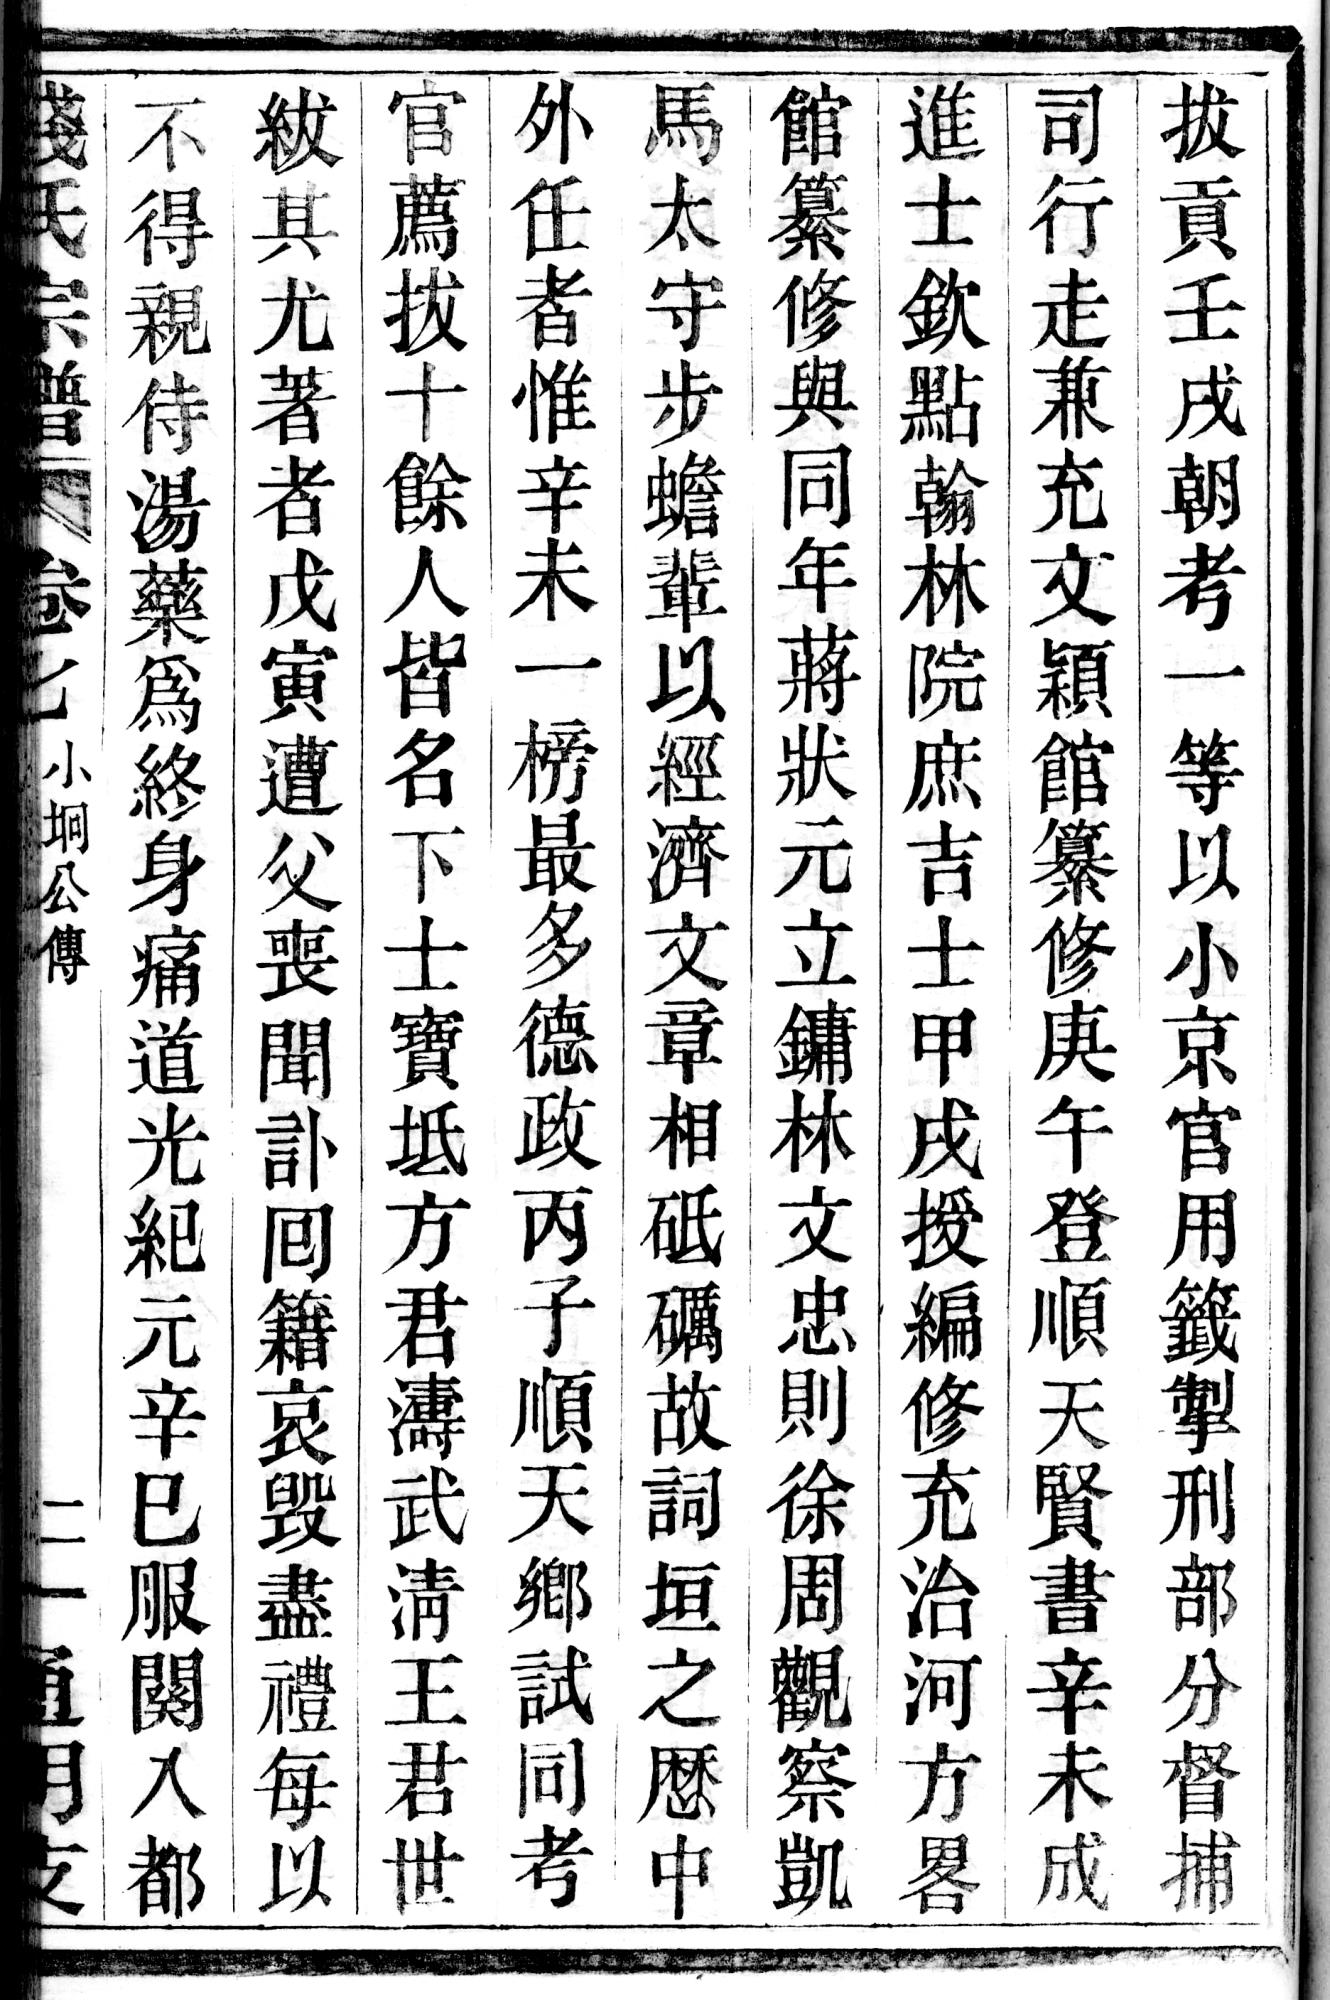 拔貢壬戌朝考一等以小京官用籤掣刑部分督捕
司行走兼充文穎館纂修庚午登順天賢書辛未成
進士欽點翰林院庶吉士甲戌授編修充治河方畧
館纂修與同年蔣狀元立鏞林文忠則徐周觀察凱
馬太守步蟾輩以經濟文章相砥礪故詞垣之歷中
外任者惟辛未一榜最多德政丙子順天鄉試同考
官薦拔十餘人皆名下士寶坻方君濤武淸王君世
紱其尤著者戊寅遭父喪聞訃囘籍哀毀盡禮每以
不得親侍湯藥爲終身痛道光紀元辛巳服闋入都
錢氏宗譜
卷七
小坰公傳
二
通明支